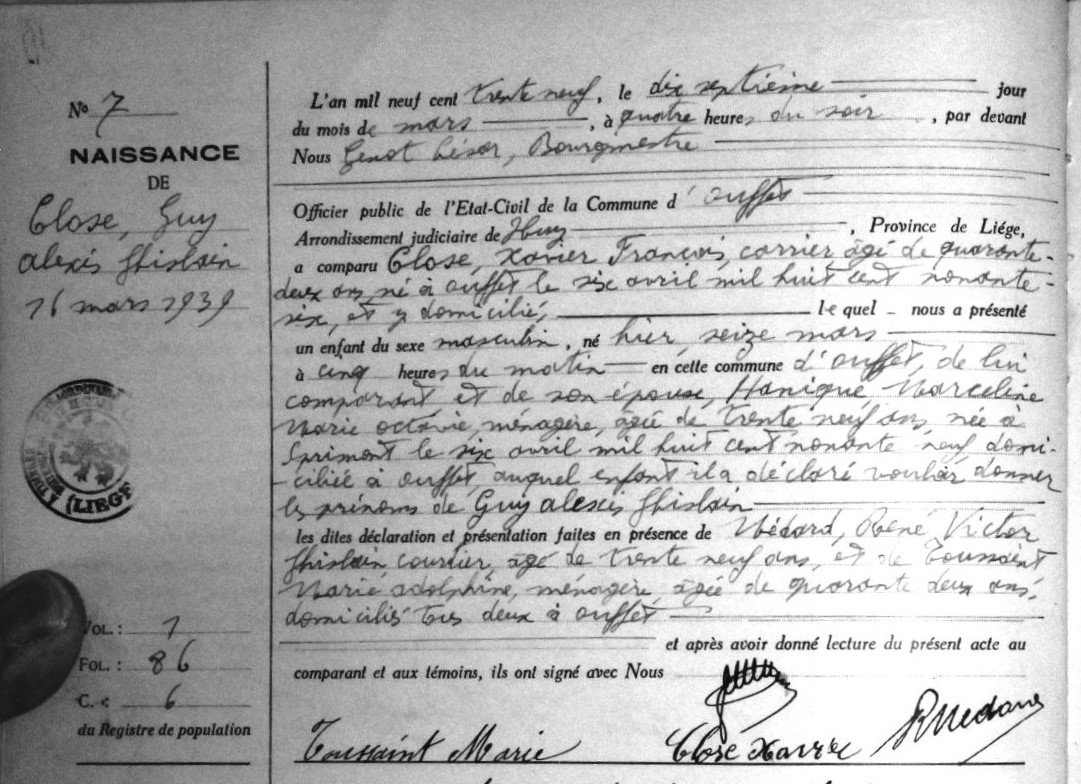 N° 7
NAISSANCE
DE
Close, Guy
alexis Ghislain
16 mars 1939
(LIEGE
VOL. : 1
FOL. : 86
C. : 6
du Registre de population
L'an mil neuf cent trente neuf, le dix septième jour
du mois de mars, à quatre heures du soir, par devant
Nous Genot César, Bourgmestre
Officier public de l'Etat-Civil de la Commune d'ouffet
Arrondissement judiciaire de Huy, Province de Liége,
a comparu Close, Xavier François, carrier âgé de quarante-
deux ans né à ouffet le six avril mil huit cent nonante-
six, et y domicilié, lequel nous a présenté
un enfant du sexe masculin, né hier, seize mars
à cinq heures du matin en cette commune d'ouffet, de lui
comparant et de son épouse, Hanique Marceline
Marie octavie, ménagère, âgée de trente neuf ans, née à
Sprimont le six avril mil huit cent nonante neuf, domi-
-ciliée à ouffet, auquel enfant il a déclaré vouloir donner
les prénoms de Guy alexis Ghislain
les dites déclaration et présentation faites en présence de Médard, René Victor
Ghislain courrier, âgé de trente neuf ans, et de Toussaint
Marie adolphine, ménagère, âgée de quarante deux ans,
domiciliés tous deux à ouffet
et après avoir donné lecture du présent acte au
comparant et aux témoins, ils ont signé avec Nous
Toussaint Marie Close Xavier RMedard